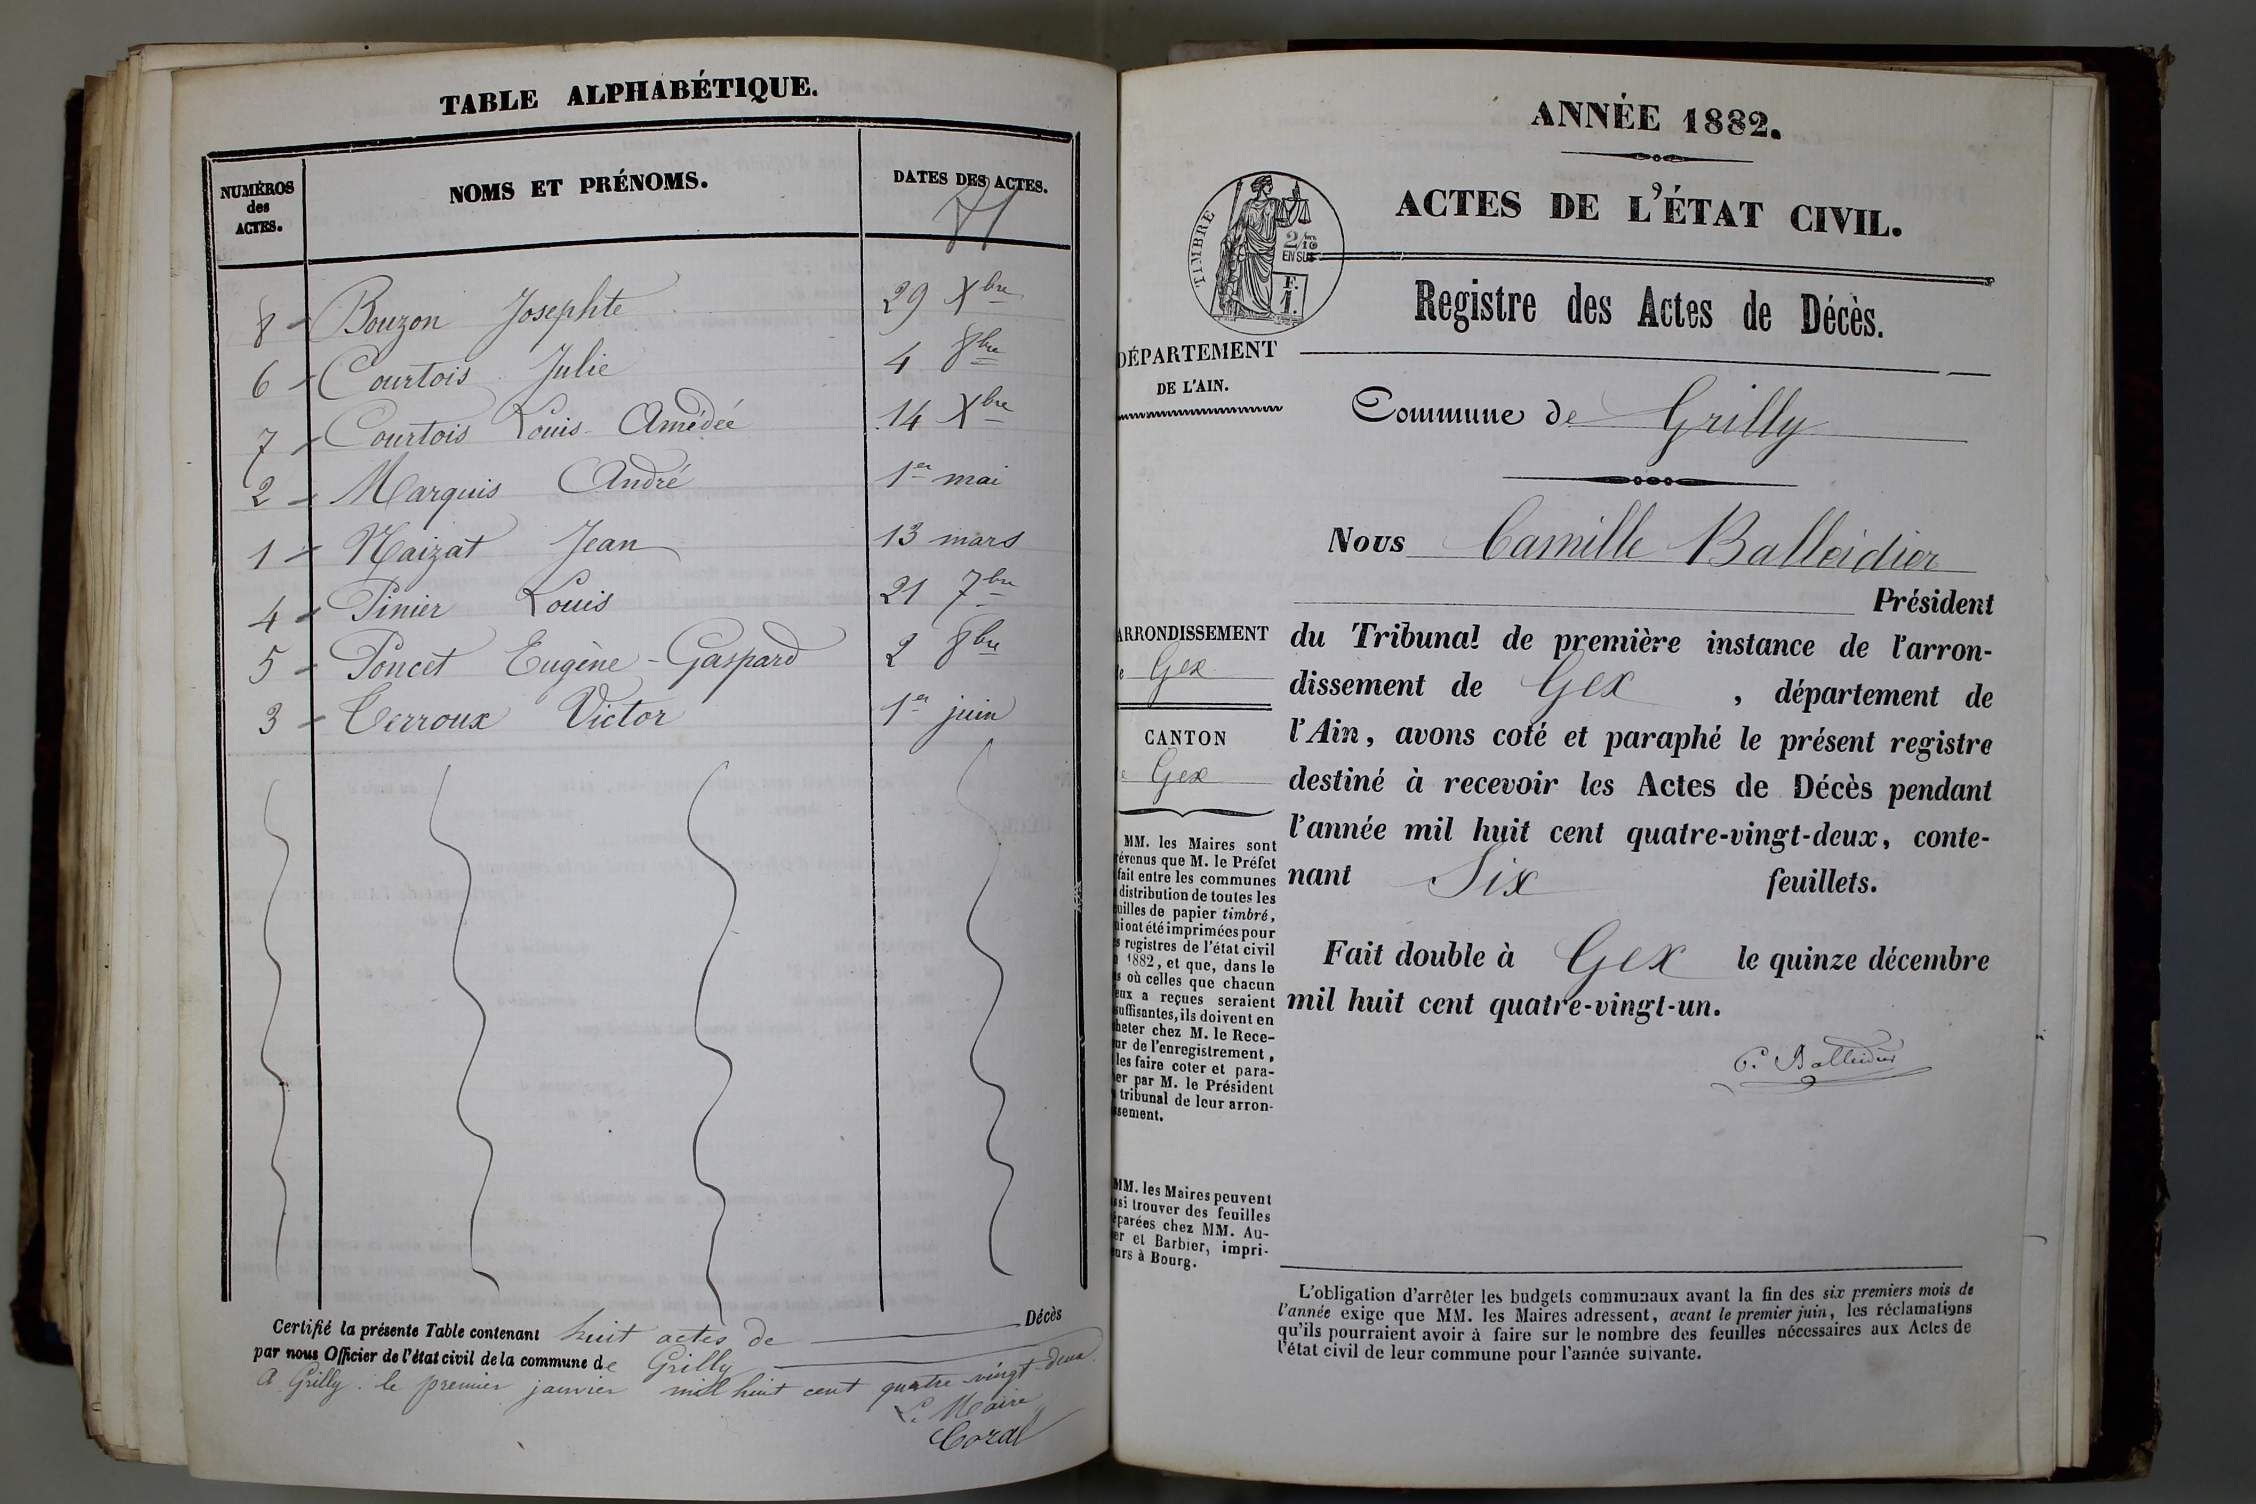 TABLE ALPHABÉTIQUE.
NUMÉROS des ACTES.
NOMS ET PRÉNOMS.
DATES DES ACTES.
81
8 - Bouzon Josephte 29 Xbre
6 - Courtois Julie 4 8bre
7 - Courtois Louis-Amédée 14 Xbre
2 - Marquis André 1er mai
1 - Naizat Jean 13 mars
4 - Pinier Louis 21 7bre
5 - Poncet Eugène-Gaspard 2 8bre
3 - Terroux Victor 1er juin
Certifié la présente Table contenant huit actes de Décès
par nous Officier de l'état civil de la commune de Grilly
A Grilly le premier janvier mil huit cent quatre vingt-deux.
Le Maire
ANNÉE 1882.
ACTES DE L'ÉTAT CIVIL.
TIMBRE
2/10
EN SUS
F.
1.
Registre des Actes de Décès.
DÉPARTEMENT
DE L'AIN.
Commune de Grilly
Nous Camille Balleidier
Président
ARRONDISSEMENT
Gex
CANTON
Gex
du Tribunal de première instance de l'arron-
dissement de Gex, département de
l'Ain, avons coté et paraphé le présent registre
destiné à recevoir les Actes de Décès pendant
l'année mil huit cent quatre-vingt-deux, conte-
nant Six feuillets.
Fait double à Gex le quinze décembre
mil huit cent quatre-vingt-un.
C. Balleidier
MM. les Maires sont
évenus que M. le Préfet
fait entre les communes
distribution de toutes les
uilles de papier timbré,
i ont été imprimées pour
s registres de l'état civil
1882, et que, dans le
s où celles que chacun
eux a reçues seraient
suffisantes, ils doivent en
heter chez M. le Rece-
ur de l'enregistrement,
les faire coter et para-
er par M. le Président
tribunal de leur arron-
ssement.
MM. les Maires peuvent
ssi trouver des feuilles
éparées chez MM. Au-
er et Barbier, impri-
urs à Bourg.
L'obligation d'arrêter les budgets communaux avant la fin des six premiers mois de
l'année exige que MM. les Maires adressent, avant le premier juin, les réclamations
qu'ils pourraient avoir à faire sur le nombre des feuilles nécessaires aux Actes de
l'état civil de leur commune pour l'année suivante.